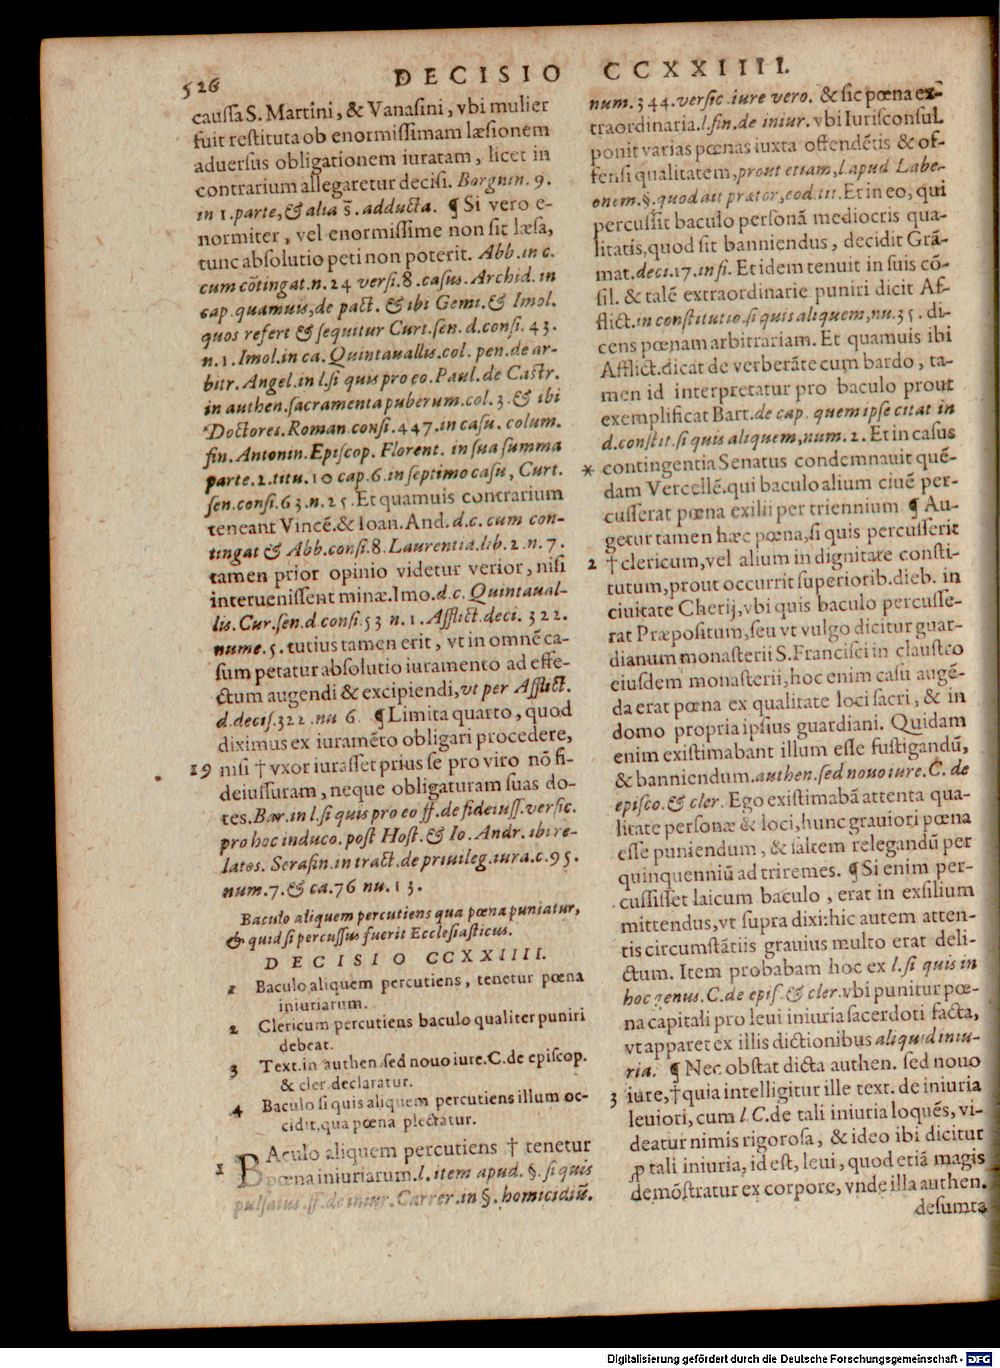 526
DECISIO CCXXIIII.
caussa S. Martini, & Vanasini, vbi mulier
fuit restituta ob enormissimam læsionem
aduersus obligationem iuratam, licet in
contrarium allegaretur decisi. Borgnin. 9.
in 1. parte, & alia s̃. adducta. ¶ Si vero e-
normiter, vel enormissime non sit læsa,
tunc absolutio peti non poterit. Abb. in c.
cum cõtingat. n. 24 versi. 8. casus. Archid. in
cap. quamuis, de pact. & ibi Gemi. & Imol.
quos refert & sequitur Curt. sen. d. consi. 43.
n. 1. Imol. in ca. Quintauallis. col. pen. de ar-
bitr. Angel. in l. si quis pro eo. Paul. de Castr.
in authen. sacramenta puberum. col. 3. & ibi
Doctores. Roman. consi. 447. in casu. colum.
fin. Antonin. Episcop. Florent. in sua summa
parte. 2. titu. 10 cap. 6. in septimo casu, Curt.
sen. consi. 63. n. 25. Et quamuis contrarium
teneant Vincẽ. & Ioan. And. d. c. cum con-
tingat & Abb. consi. 8. Laurentia. lib. 2. n. 7.
tamen prior opinio videtur verior, nisi
interuenissent minæ. Imo. d. c. Quintaual-
lis. Cur. sen. d. consi. 53 n. 1. Afflict. deci. 322.
nume. 5. tutius tamen erit, vt in omnẽ ca-
sum petatur absolutio iuramento ad effe-
ctum augendi & excipiendi, vt per Afflict.
d. decis. 322. nu 6. ¶ Limita quarto, quod
diximus ex iuramẽto obligari procedere,
19 nisi † vxor iurasset prius se pro viro nõ fi-
deiussuram, neque obligaturam suas do-
tes. Bar. in l. si quis pro eo ff. de fideiuss. versic.
pro hoc induco. post Host. & Io. Andr. ibi re-
latos. Serafin. in tract. de priuileg. iura. c. 95.
num. 7. & ca. 76 nu. 13.
Baculo aliquem percutiens qua pœna puniatur,
& quid si percussus fuerit Ecclesiasticus.
DECISIO CCXXIIII.
1 Baculo aliquem percutiens, tenetur pœna
iniuriarum.
2 Clericum percutiens baculo qualiter puniri
debeat.
3 Text. in authen. sed nouo iure. C. de episcop.
& cler. declaratur.
4 Baculo si quis aliquem percutiens illum oc-
cidit, qua pœna plectatur.
BAculo aliquem percutiens † tenetur
1 pœna iniuriarum. l. item apud. §. si quis
pulsatus. ff. de iniur. Carrer. in §. homicidiũ.
num. 344. versic. iure vero. & sic pœna ex-
traordinaria. l. fin. de iniur. vbi Iurisconsul.
ponit varias pœnas iuxta offendẽtis & of-
fensi qualitatem, prout etiam, l. apud Labe-
onem. §. quod ait prætor, eod. tit. Et in eo, qui
percussit baculo personã mediocris qua-
litatis, quod sit banniendus, decidit Grã-
mat. deci. 17. in fi. Et idem tenuit in suis cõ-
sil. & talẽ extraordinarie puniri dicit Af-
flict. in constitutio. si quis aliquem, nu. 35. di-
cens pœnam arbitrariam. Et quamuis ibi
Afflict. dicat de verberãte cum bardo, ta-
men id interpretatur pro baculo prout
exemplificat Bart. de cap. quem ipse citat in
d. constit. si quis aliquem, num. 2. Et in casus
* contingentia Senatus condemnauit quẽ-
dam Vercellẽ. qui baculo alium ciuẽ per-
cusserat pœna exilii per triennium ¶ Au-
getur tamen hæc pœna, si quis percusserit
2 † clericum, vel alium in dignitate consti-
tutum, prout occurrit superiorib. dieb. in
ciuitate Cherij, vbi quis baculo percusse-
rat Præpositum, seu vt vulgo dicitur guar-
dianum monasterii S. Francisci in claustro
eiusdem monasterii, hoc enim casu augẽ-
da erat pœna ex qualitate loci sacri, & in
domo propria ipsius guardiani. Quidam
enim existimabant illum esse fustigandũ,
& banniendum. authen. sed nouo iure. C. de
episco. & cler. Ego existimabã attenta qua-
litate personæ & loci, hunc grauiori pœna
esse puniendum, & saltem relegandũ per
quinquenniũ ad triremes. ¶ Si enim per-
cussisset laicum baculo, erat in exsilium
mittendus, vt supra dixi: hic autem atten-
tis circumstãtiis grauius multo erat deli-
ctum. Item probabam hoc ex l. si quis in
hoc genus. C. de epis. & cler. vbi punitur pœ-
na capitali pro leui iniuria sacerdoti facta,
vt apparet ex illis dictionibus aliquid iniu-
ria. ¶ Nec obstat dicta authen. sed nouo
3 iure, † quia intelligitur ille text. de iniuria
leuiori, cum l. C. de tali iniuria loquẽs, vi-
deatur nimis rigorosa, & ideo ibi dicitur
ꝓ tali iniuria, id est, leui, quod etiã magis
demõstratur ex corpore, vnde illa authen.
desumta
Digitalisierung gefördert durch die Deutsche Forschungsgemeinschaft - DFG